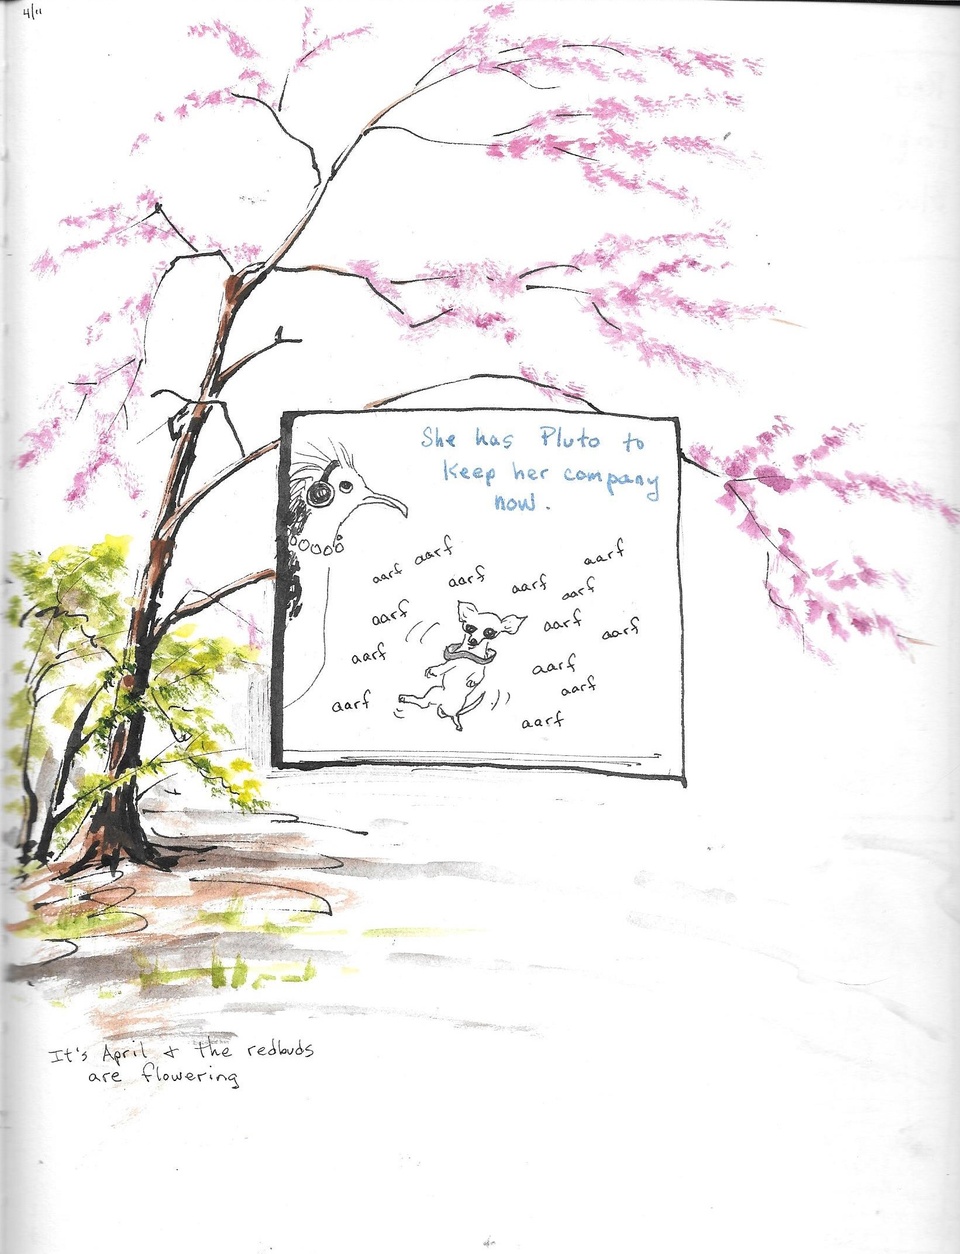 4/11
She has Pluto to
keep her company
now.
aarf
aarf
aarf
aarf
aarf
aarf
aarf
aarf
aarf
aarf
aarf
aarf
aarf
aarf
It's April & the redbuds
are flowering